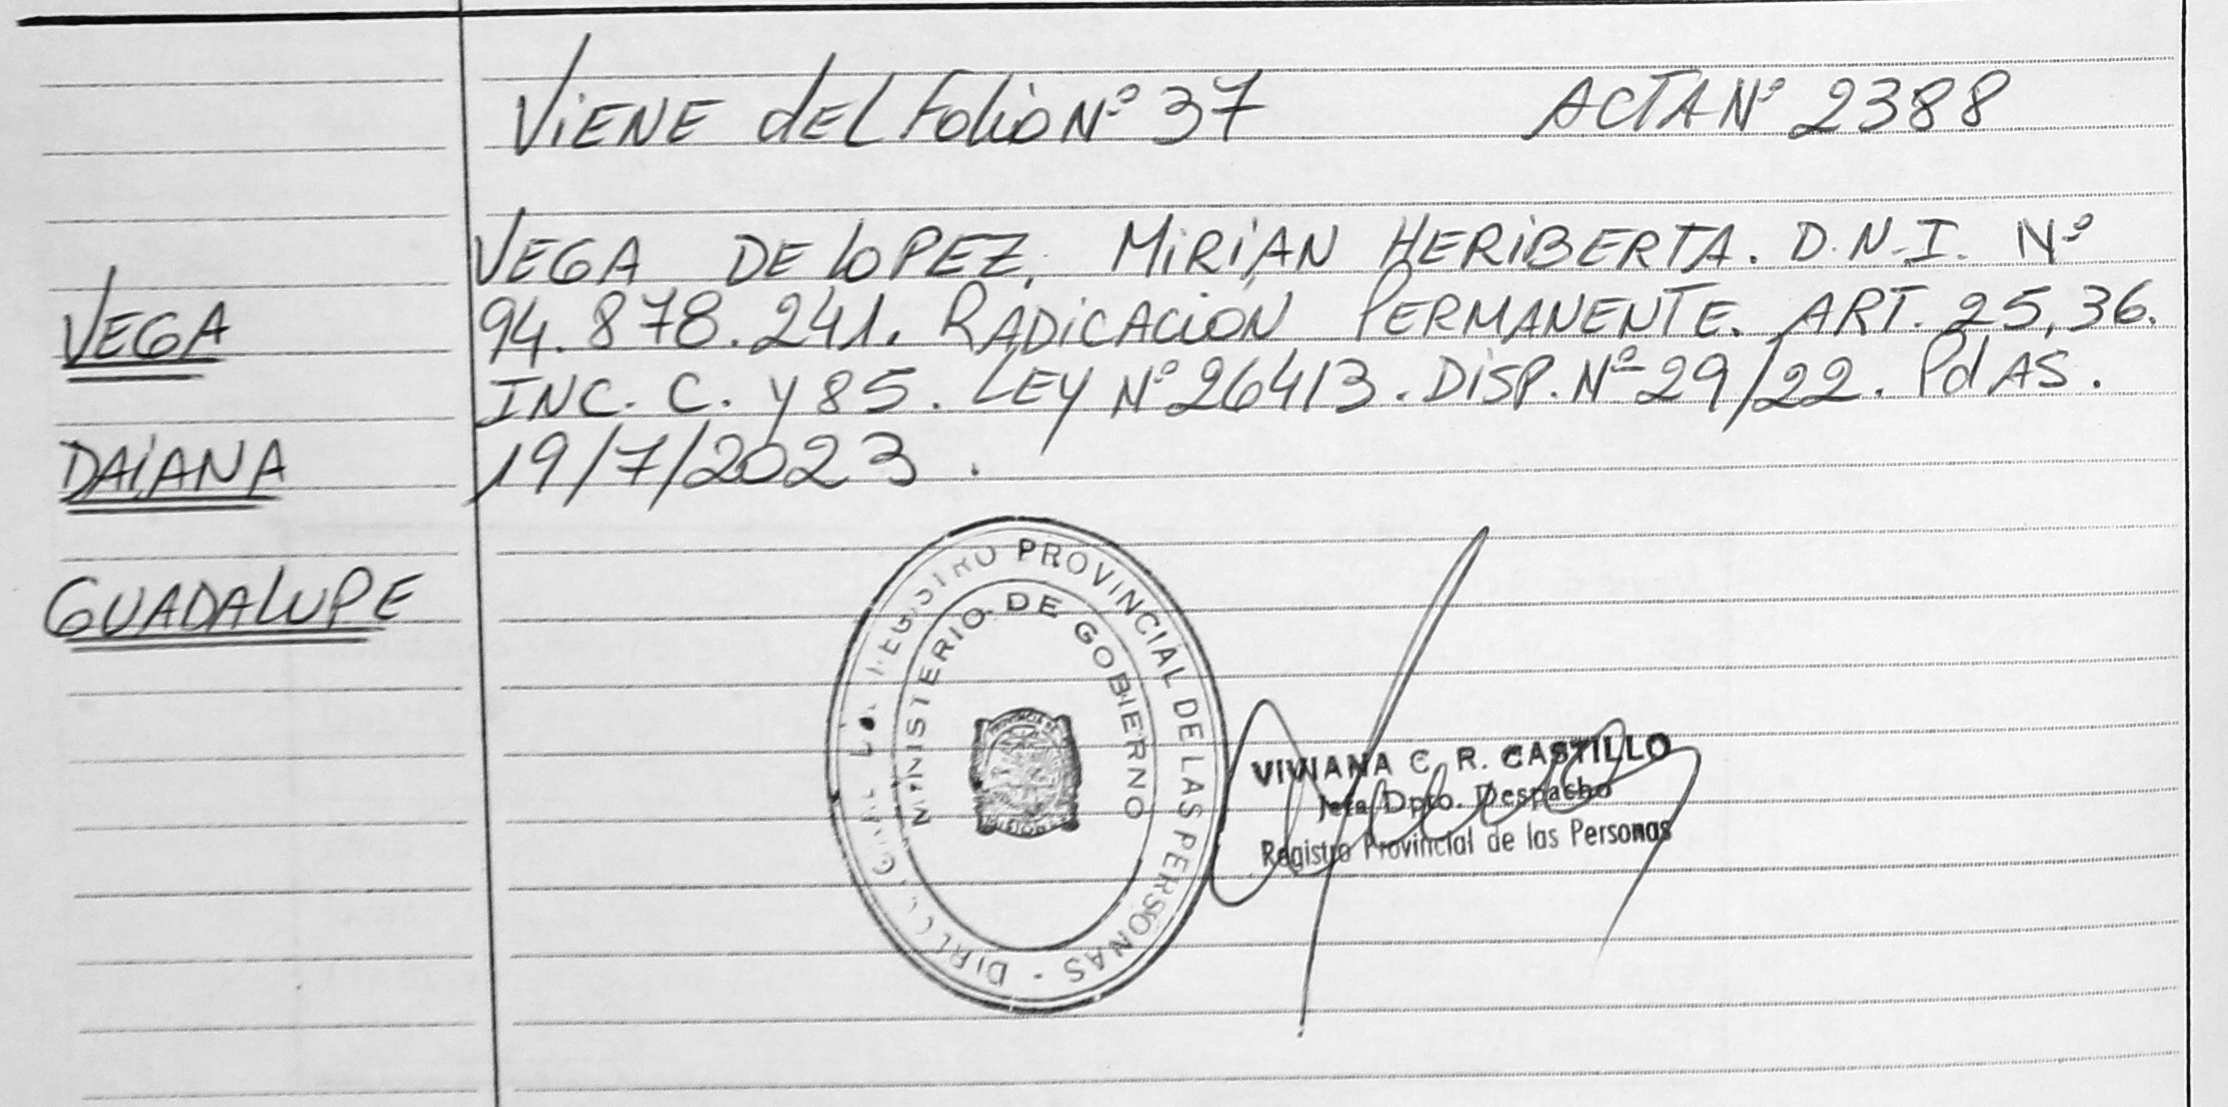 ViENE dEL Folio Nº 37 ACTA Nº 2388
VEGA DE LOPEZ, MiRiAN HERiBERTA. D.N.I. Nº
94.878.241. RADiCACiÓN PERMANENTE. ART. 25, 36.
INC. C. Y 85. LEY Nº 26413. DiSP. Nº 29/22. PdAS.
19/7/2023.
VEGA
DAiANA
GUADALUPE
REGISTRO PROVINCIAL DE LAS PERSONAS -
MINISTERIO DE GOBIERNO
PROVINCIA DE
MISIONES
VIVIANA C. R. CASTILLO
Jefa Dpto. Despacho
Registro Provincial de las Personas